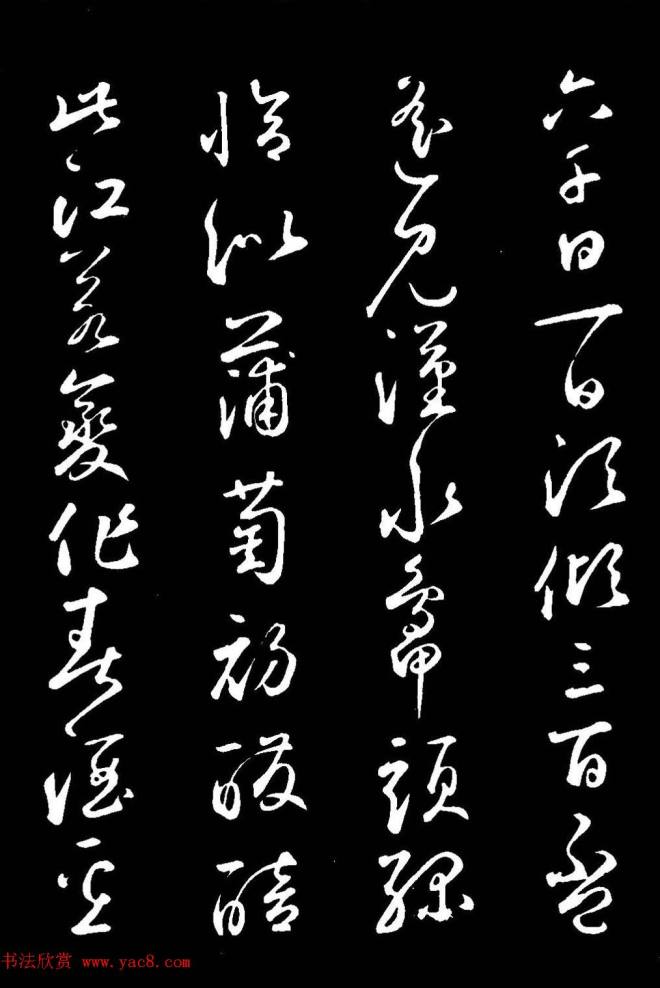 六千日一日須傾三百盃
遙見漢水鴨頭綠
恰似蒲萄初醱醅
此江若變作春酒
书法欣赏 www.yac8.com